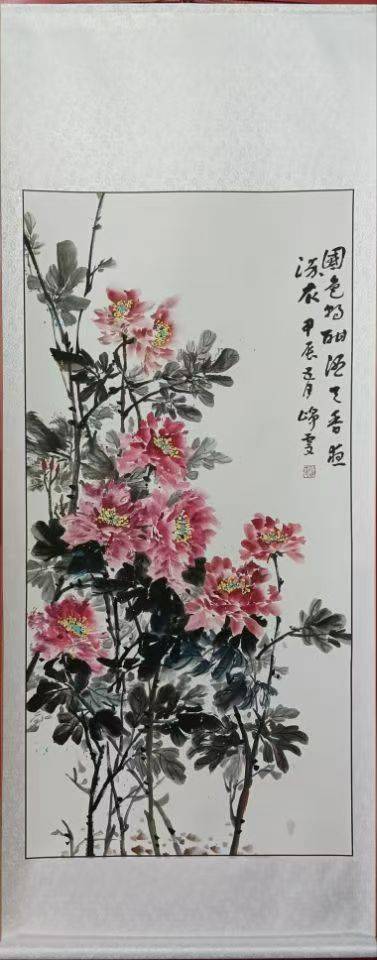 國色朝酣酒天香夜
染衣 甲辰 月 峰